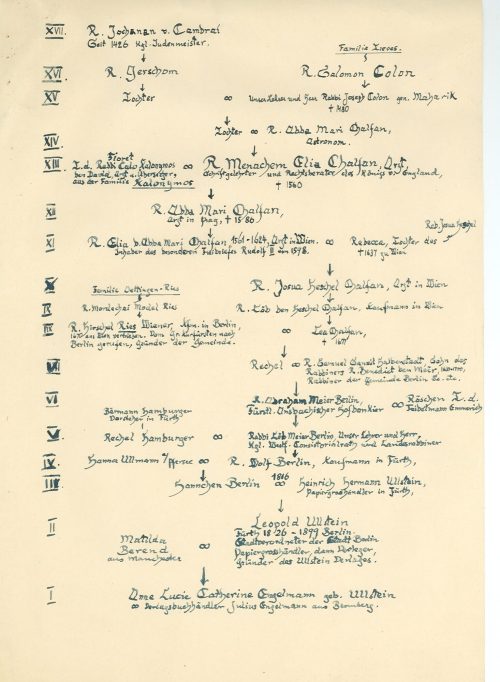 XVII. R. Jochanan v. Cambrai
Seit 1426 Kgl. Judenmeister.
Familie Treves.
XVI. R. Gerschom
R. Salomon Colon
XV Tochter ∞ unser Lehrer und Herr Rabbi Joseph Colon gen. Maharik
† 1480
XIV. Tochter ∞ R. Abba Mari Chalfan,
Astronom.
XIII. Fioret
T. d. Rabbi Calo Kalonymos
ben David, Arzt u. Übersetzer,
aus der Familie Kalonymos
∞ R. Menachem Elia Chalfan, Arzt,
Schriftgelehrter und Rechtsberater des Königs v. England,
† 1560
XII R. Abba Mari Chalfan,
Arzt in Prag, † 1586
Reb. Josua Heschel
XI R. Elia b. Abba Mari Chalfan 1561-1624, Arzt in Wien.
Inhaber des besonderen Freibriefes Rudolf II von 1598.
∞ Rebecca, Tochter des
† 1637 zu Wien
X Familie Oettingen-Ries
R. Josua Heschel Chalfan, Arzt in Wien
R. Mordechai Model Ries
R. Löb ben Heschel Chalfan, Kaufmann in Wien
R. Hirschel Ries Wiener, Kfm. in Berlin,
1670 aus Wien vertrieben. Vom Gr. Kurfürsten nach
Berlin gerufen, Gründer der Gemeinde.
∞ Lea Chalfan,
VII Rechel ∞ R. Samuel Sanwil Halberstadt, Sohn des
Rabbiners R. Benedict ben Meïr,
Rabbiner der Gemeinde Berlin
VI R. Abraham Meier Berlin,
Fürstl. Ansbachischer Hofbankier
∞ Röschen T. d.
Feibelmann Emmerich
Bärmann Hamburger
in Fürth
V. Rechel Hamburger ∞ Rabbi Löb Meier Berlin, Unser Lehrer und Herr,
Kgl. Westf. Consistorialrath und Landrabbiner
IV. Hanna Ullmann ∞ R. Wolf Berlin, Kaufmann in Fürth,
III Hannchen Berlin 1816 ∞ Heinrich Hermann Ullstein,
Papiergrosshändler in Fürth,
II Matilda
Berend
aus Manchester
∞ Leopold Ullstein
Fürth 1826 - 1899 Berlin
Stadtverordneter der Stadt Berlin
Papiergrosshändler, dann Verleger,
Gründer des Ullstein Verlages.
I Anne Lucie Catherine Engelmann geb. Ullstein
∞ Verlagsbuchhändler Julius Engelmann aus Bromberg.